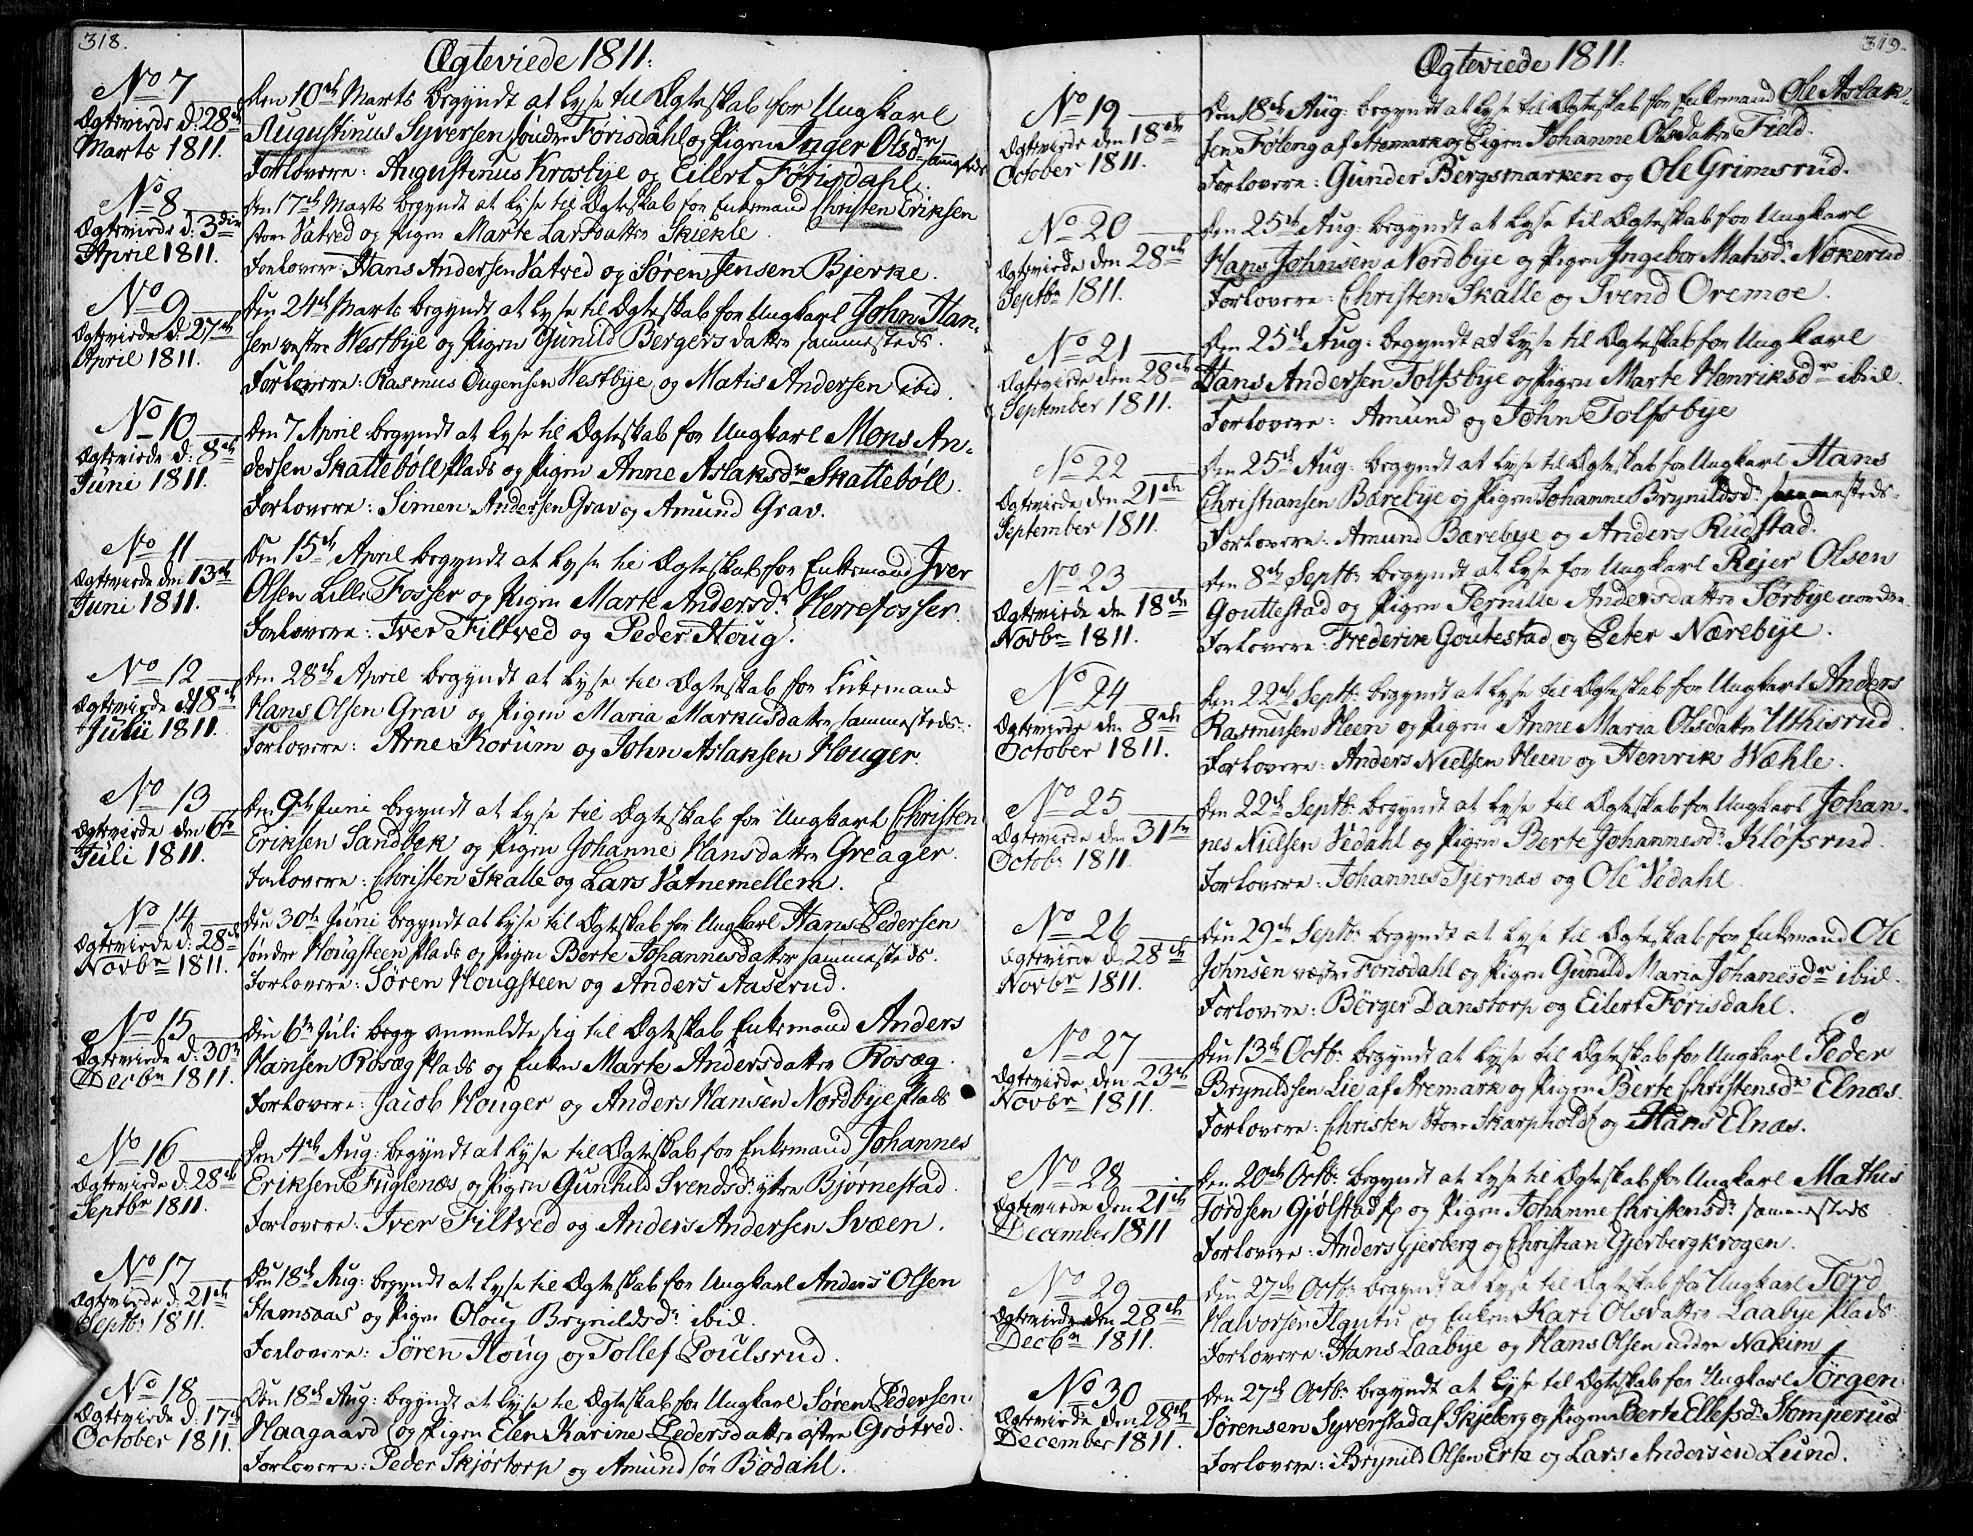 318.
Ægteviede 1811.
No 7
Ægteviede d: 28de
Marts 1811.
Den 10de Marts begyndt at lyse til Ægteskab for Ungkarl
Augustinus Syversen søndre Førisdahl og Pigen Inger Olsdr sammesteds
Forlovere: Augustinus Krosbye og Eilert Førisdahl.
No 8
Ægteviede d: 3die
April 1811.
Den 17de Marts begyndt at lyse til Ægteskab for Enkemand Christen Eriksen
store Vatved og Pigen Marte Larsdatter Skiekle
Forlovere Hans Andersen Vatved og Søren Jensen Bjerke.
No 9
Ægteviede d: 27de
April 1811.
Den 24de Marts begyndt at lyse til Ægteskab for Ungkarl John Han-
sen vestre Westbye og Pigen Gunild Bergersdatter sammesteds.
Forlovere: Rasmus Westbye og Matis Andersen ibid.
No 10
Ægteviede d: 8de
Juni 1811.
Den 7 April begyndt at lyse til Ægteskab for Ungkarl Mons An-
dersen Skattebøll Plads og Pigen Anne Aslaksdr Skattebøll.
Forlovere: Simen Andersen Grav og Amund Grav.
No 11
Ægteviede den 13de
Juni 1811.
Den 15de April begyndt at lyse til Ægteskab for Enkemand Iver
Olsen Lille Fosser og Pigen Marte Andersdr Herrefosser.
Forlovere: Iver Filtved og Peder Houg.
No 12
Ægteviede d 18de
Julii 1811.
Den 28de April begyndt at lyse til Ægteskab for Enkemand
Hans Olsen Grav og Pigen Maria Markusdatter sammesteds.
Forlovere: Arne Korum og John Aslaksen Houger.
No 13
Ægteviede den 6te
Juli 1811.
Den 9de Juni begyndt at lyse til Ægteskab for Ungkarl Christen
Eriksen Sandbek og Pigen Johanne Hansdatter Greager.
Forlovere: Christen Skalle og Lars Vatnemellem.
No 14
Ægteviede d: 28de
Novbr 1811.
Den 30te Juni begyndt at lyse til Ægteskab for Ungkarl Hans Pedersen
søndre Hougsteen Plads og Pigen Berte Johannisdatter sammesteds.
Forlovere: Søren Hougsteen og Anders Aaserud.
No 15
Ægteviede d: 30te
Decbr 1811.
Den 6te Juli begy anmeldte sig til Ægteskab Enkemand Anders
Hansen Rosæg Plads og Enken Marte Andersdatter Rosæg.
Forlovere: Jacob Houger og Anders Hansen Nordbye Plads
No 16
Ægteviede d: 28de
Septbr 1811.
Den 4de Aug: begyndt at lyse til Ægteskab for Enkemand Johannes
Eriksen Fuglenæs og Pigen Gunhild Svendsdr ytre Bjørnestad.
Forlovere: Iver Filtved og Anders Andersen Svæen.
No 17
Ægteviede d: 21de
Septbr 1811.
Den 18de Aug: begyndt at lyse til Ægteskab for Ungkarl Anders Olsen
Stamsaas og Pigen Oloug Brynildsdr ibid.
Forlovere: Søren Houg og Tollef Poulsrud.
No 18
Ægteviede d: 17de
October 1811.
Den 18de Aug: begyndt at lyse til Ægteskab for Ungkarl Søren Pedersen
Haagaard og Pigen Elen Karine Pedersdatter østre Grøtved.
Forlovere: Peder Skjørtorp og Amund sør Bødahl.
319.
Ægteviede 1811.
No 19
Ægteviede den 18de
October 1811.
Den 18de Aug: begyndt at lyse til Ægteskab for Enkemand Ole Aslak-
sen Føleng af Aremark og Pigen Johanne Olsdatter Field.
Forlovere: Gunder Bergsmarken og Ole Grimsrud.
No 20
Ægteviede den 28de
Septbr 1811.
Den 25de Aug: begyndt at lyse til Ægteskab for Ungkarl
Hans Johnsen Nordbye og Pigen Ingebor Matisdr Nokerud
Forlovere: Christen Skalle og Svend Oremoe.
No 21
Ægteviede den 28de
September 1811.
Den 25de Aug: begyndt at lyse til Ægteskab for Ungkarl
Hans Andersen Tolfsbye og Pigen Marte Henriksdr ibid.
Forlovere: Amund og John Tolfsbye
No 22
Ægteviede den 21de
September 1811.
Den 25de Aug: begyndt at lyse til Ægteskab for Ungkarl Hans
Christiansen Bærebye og Pigen Johanne Brynildsdr sammesteds.
Forlovere: Amund Bærebye og Anders Rudstad.
No 23
Ægteviede den 18de
Novbr 1811.
Den 8de Septbr begyndt at lyse for Ungkarl Rejer Olsen
Gouttestad og Pigen Pernille Andersdatter Sørbye nordre
Forlovere: Frederik Goutestad og Peter Nærebye.
No 24
Ægteviede den 8de
October 1811.
Den 22de Septbr begyndt at lyse til Ægteskab for Ungkarl Anders
Rasmusen Heen og Pigen Anne Maria Olsdatter Uthisrud
Forlovere: Anders Nielsen Heen og Henrik Wæhle.
No 25
Ægteviede den 31te
Octobr 1811.
Den 22de Septbr begyndt at lyse til Ægteskab for Ungkarl Johan-
nes Nielsen Vedahl og Pigen Berte Johannesdr Kløfsrud.
Forlovere: Johannes Tjernæs og Ole Vedahl
No 26
Ægteviede d: 28de
Novbr 1811.
Den 29de Septbr begyndt at lyse til Ægteskab for Enkemand Ole
Johnsen væstre Forisdahl og Pigen Gunild Maria Johanesdr ibid.
Forlovere: Børger Danstorp og Eilert Førisdahl.
No 27
Ægteviede den 23de
Novbr 1811.
Den 13de Octbr begyndt at lyse til Ægteskab for Ungkarl Peder
Brynildsen Lie af Aremark og Pigen Berte Christensdr Elnæs.
Forlovere: Christen Store Skarpholdt og Hans Elnæs.
No 28
Ægteviede den 21de
December 1811
Den 20de Octbr begyndt at lyse til Ægteskab for Ungkarl Mathis
Tordsen Gjølstad Pl og Pigen Johanne Christensdr sammesteds
Forlovere: Anders Gjerberg og Christian Gjerbergkrogen.
No 29
Ægteviede den 28de
Decbr 1811.
Den 27de Octbr begyndt at lyse til Ægteskab for Ungkarl Tord
Halvorsen Agntu og Enken Kari Olsdatter Laabye Plads
Forlovere: Hans Laabye og Hans Olsen nedre Nakim
No 30
Ægteviede den 28de
December 1811.
Den 27de Octbr begyndt at lyse til Ægteskab for Ungkarl Jørgen
Sørensen Syverstad af Skjeberg og Pigen Berte Ellefsdr Stomperud
Forlovere: Brynild Olsen Erte og Lars Andersen Lund.